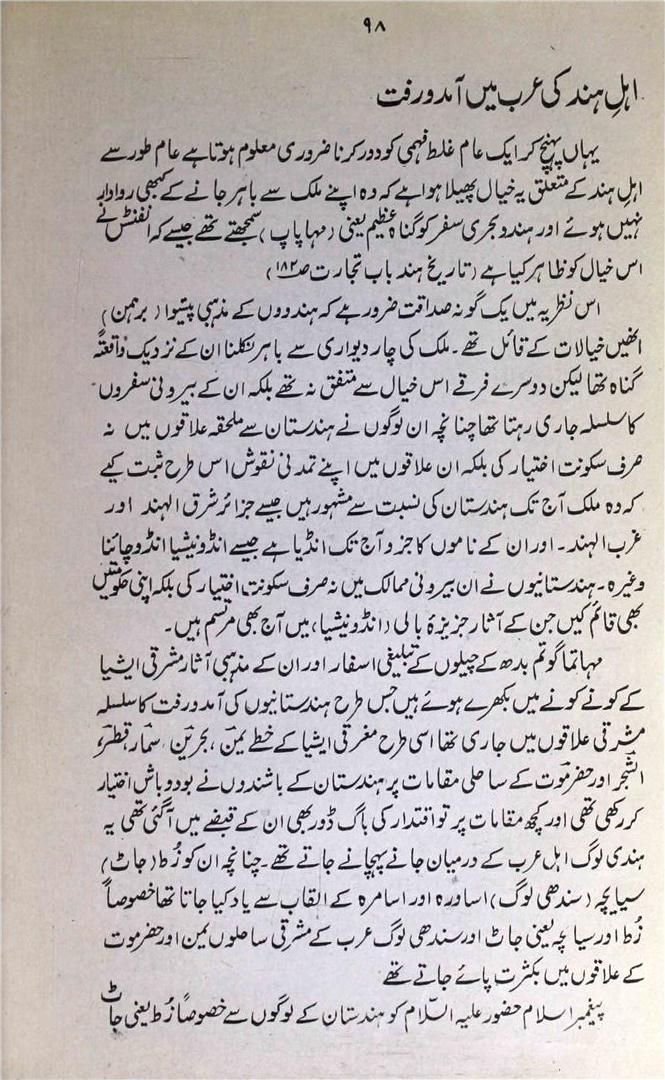 ۹۸
اہلِ ہند کی عرب میں آمد و رفت
یہاں پہنچ کر ایک عام غلط فہمی کو دور کرنا ضروری معلوم ہوتا ہے عام طور سے
اہلِ ہند کے متعلق یہ خیال پھیلا ہوا ہے کہ وہ اپنے ملک سے باہر جانے کے کبھی روادار
نہیں ہوئے اور ہندو بحری سفر کو گناہ عظیم یعنی (مہا پاپ) سمجھتے تھے جیسے کہ انفنٹن نے
اس خیال کو ظاہر کیا ہے (تاریخ ہند باب تجارت ص۱۸۲)
اس نظریہ میں یک گونہ صداقت ضرور ہے کہ ہندووں کے مذہبی پیشوا (برہمن)
انھیں خیالات کے قائل تھے۔ ملک کی چار دیواری سے باہر نکلنا ان کے نزدیک واقعتہً
گناہ تھا لیکن دوسرے فرقے اس خیال سے متفق نہ تھے بلکہ ان کے بیرونی سفروں
کا سلسلہ جاری رہتا تھا چنانچہ ان لوگوں نے ہندستان سے ملحقہ علاقوں میں نہ
صرف سکونت اختیار کی بلکہ ان علاقوں میں اپنے تمدنی نقوش اس طرح ثبت کیے
کہ وہ ملک آج تک ہندستان کی نسبت سے مشہور ہیں جیسے جزائر شرق الہند اور
غرب الہند۔ اور ان کے ناموں کا جزو آج تک انڈیا ہے جیسے انڈونیشیا انڈو چائنا
وغیرہ۔ ہندستانیوں نے ان بیرونی ممالک میں نہ صرف سکونت اختیار کی بلکہ اپنی حکومتیں
بھی قائم کیں جن کے آثار جزیرۂ بالی (انڈونیشیا) میں آج بھی مرتسم ہیں۔
مہاتما گوتم بدھ کے چیلوں کے تبلیغی اسفار اور ان کے مذہبی آثار مشرقی ایشیا
کے کونے کونے میں بکھرے ہوئے ہیں جس طرح ہندستانیوں کی آمد و رفت کا سلسلہ
مشرقی علاقوں میں جاری تھا اسی طرح مغربی ایشیا کے خطے یمن، بحرین، سمار، قطر،
الشجر اور حضرموت کے ساحلی مقامات پر ہندستان کے باشندوں نے بود و باش اختیار
کر رکھی تھی اور کچھ مقامات پر تو اقتدار کی باگ ڈور بھی ان کے قبضے میں آگئی تھی یہ
ہندی لوگ اہل عرب کے درمیان جانے پہچانے جاتے تھے۔ چنانچہ ان کو زُط (جاٹ)
سیابچہ (سندھی لوگ) اساورہ اور اسامرہ کے القاب سے یاد کیا جاتا تھا خصوصاً
زُط اور سیابچہ یعنی جاٹ اور سندھی لوگ عرب کے مشرقی ساحلوں یمن اور حضرموت
کے علاقوں میں بکثرت پائے جاتے تھے
پیغمبر اسلام حضور علیہ السّلام کو ہندستان کے لوگوں سے خصوصاً زُط یعنی جاٹ